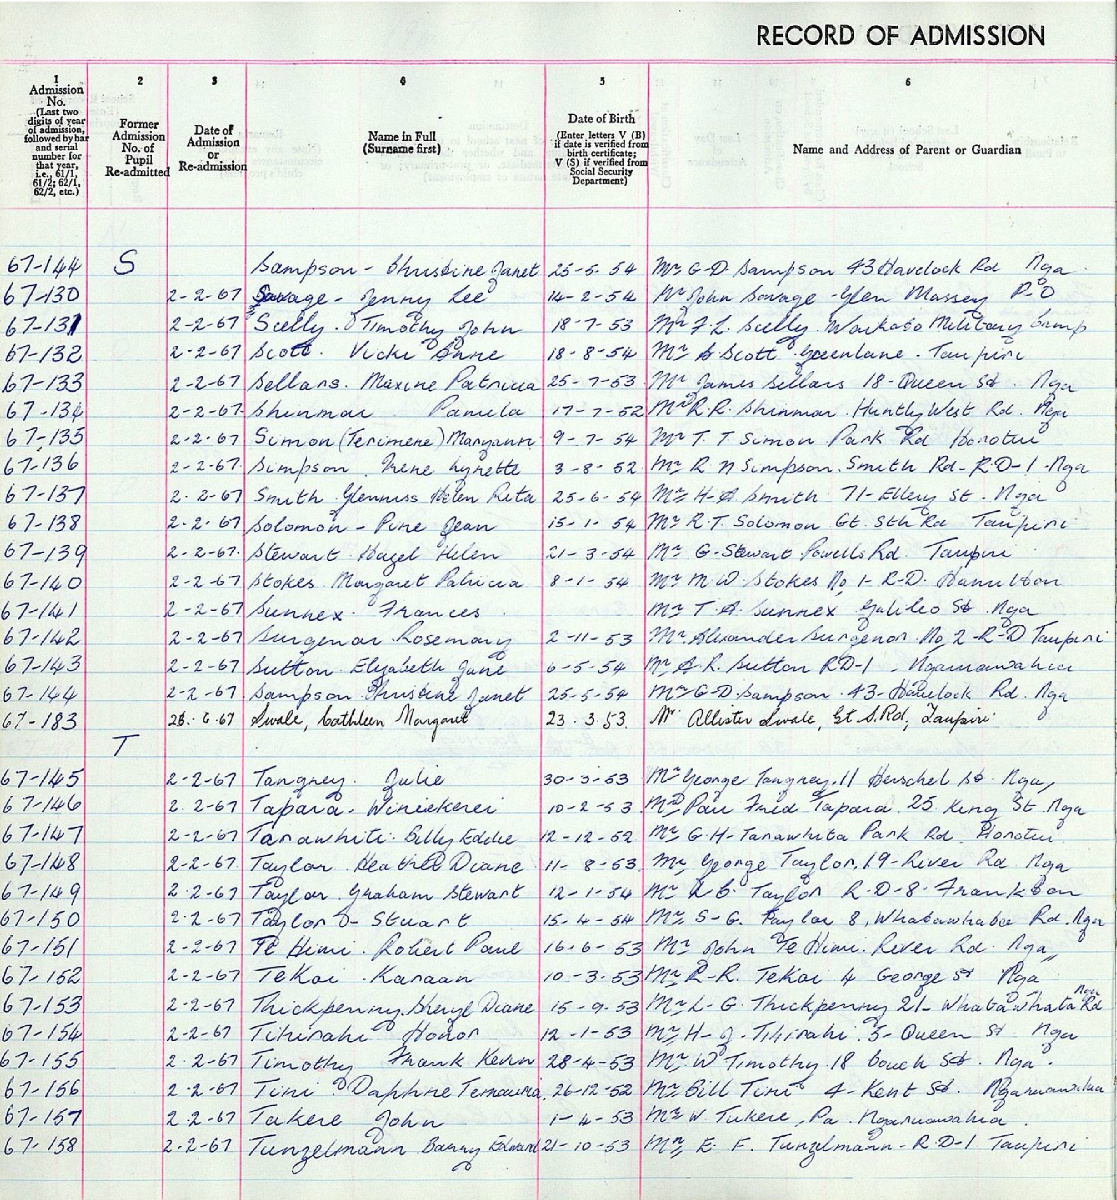 RECORD OF ADMISSION
1 2 3 4 5 6
Admission No. (Last two digits of year of admission, followed by bar and serial number for that year, i.e., 61/1, 61/2; 62/1, 62/2, etc.)
Former Admission No. of Pupil Re-admitted
Date of Admission or Re-admission
Name in Full (Surname first)
Date of Birth (Enter letters V (B) if date is verified from birth certificate; V (S) if verified from Social Security Department)
Name and Address of Parent or Guardian
67-144 S Sampson - Christine Janet 25-5-54 Mr G-D Sampson 43 Havelock Rd Nga
67-130 2-2-67 Savage - Jenny Lee 14-2-54 Mr John Savage - Glen Massey P-O
67-131 2-2-67 Scelly Timothy John 18-7-53 Mr F.L. Scelly Waikato Military Camp
67-132 2-2-67 Scott. Vicki Anne 18-8-54 Mr Scott Greenlane. Taupiri
67-133 2-2-67 Sellars. Maxine Patricia 25-7-53 Mr James Sellars 18-Queen St. Nga
67-134 2-2-67 Shinmar Pamela 17-7-52 Mr R.R. Shinmar. Huntly West Rd. Nga
67-135 2-2-67 Simon (Terimene) Maryann 9-7-54 Mr T. T Simon Park Rd Horotiu
67-136 2-2-67 Simpson Irene Lynette 3-8-52 Mr R N Simpson. Smith Rd-R-D-1-Nga
67-137 2-2-67 Smith Glenniss Helen Rita 25-6-54 Mr H-A Smith 71-Ellery St. Nga
67-138 2-2-67 Solomon - Pine Jean 15-1-54 Mr R.T. Solomon Gt. Sth Rd Taupiri
67-139 2-2-67 Stewart Hazel Helen 21-3-54 Mr G-Stewart Powells Rd. Taupiri
67-140 2-2-67 Stokes Margaret Patricia 8-1-54 Mr M W Stokes No 1-R-D. Hamilton
67-141 2-2-67 Sunnex. Frances Mr T A Sunnex Galileo St Nga
67-142 2-2-67 Surgenor Rosemary 2-11-53 Mr Alexander Surgenor. No 2-R-D Taupiri
67-143 2-2-67 Sutton Elizabeth Jane 6-5-54 Mr A R. Sutton RD-1 Ngaruawahia
67-144 2-2-67 Sampson Christine Janet 25-5-54 Mr G-D Sampson. 43-Havelock Rd. Nga
67-183 28.6.67 Swale, Cathleen Margaret 23.3.53. Mr Allister Swale, Gt. S. Rd, Taupiri
T
67-145 2-2-67 Tangney. Julie 30-3-53 Mr George Tangney. 11 Herschel St. Nga
67-146 2-2-67 Tapara. 10-2-53 Tapara. 25 King St Nga
67-147 2-2-67 Tarawhiti. Billy Eddie 12-12-52 Mr G-H-Tarawhiti Park Rd. Horotiu
67-148 2-2-67 Taylor Diane 11-8-53 Mr George Taylor, 19-River Rd. Nga
67-149 2-2-67 Taylor Graham Stewart 12-1-54 Mr Taylor R-D-8-Frankton
67-150 2-2-67 Taylor - Stuart 15-4-54 Mr S-G. Taylor 8, Whatawhata Rd. Nga
67-151 2-2-67 Te Himi. Robert Paul 16-6-53 Mr John Te Himi. River Rd. Nga
67-152 2-2-67 TeKoi. Karaan 10-3-53 Mr P-R. TeKoi 4 George St Nga
67-153 2-2-67 Thickpenny. Sheryl Diane 15-9-53 Mr L-G. Thickpenny 21-Whatawhata Rd Nga
67-154 2-2-67 Tihirahi Honor 12-1-53 Mr H-J. Tihirahi. 5-Queen St. Nga
67-155 2-2-67 Timothy Frank Kevin 28-4-53 Mr W Timothy. 18 Couch St. Nga.
67-156 2-2-67 Tini Daphne 26-12-52 Mr Bill Tini 4-Kent St. Ngaruawahia
67-157 2-2-67 Tukere John 1-4-53 Mr W. Tukere, Pa. Ngaruawahia.
67-158 2-2-67 Tunzelmann Barry Edward 21-10-53 Mr E F. Tunzelmann-R-D-1 Taupiri